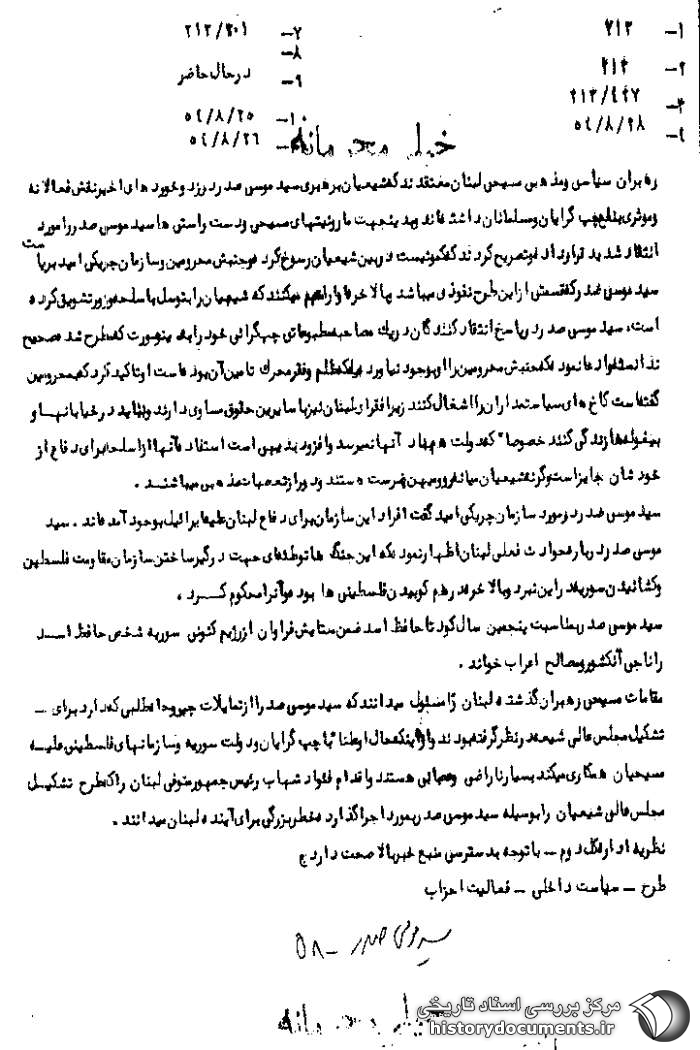 ۱- ۲۱۲
۲- ۲۱۲
۳- ۲۱۲/۴۲۷
۴- ۵٤/۸/۲۸
۷- ۲۱۲/۳۰۱
۸-
۹- در حال حاضر
۱۰- ۵٤/۸/۲۵
- ۵٤/۸/۲٦
خیلی محرمانه
رهبران سیاسی و مذهبی مسیحی لبنان معتقدند که شیعیان برهبری سید موسی صدر در زد و خورد های اخیر نقش فعالانه
و موثری بنفع چپ گرایان و مسلمانان داشته‌اند و بدینجهت مارونیتهای مسیحی و دست راستی ها سید موسی صدر را مورد
انتقاد شدید قرار داده و تصریح کردند که کمونیست در بین شیعیان رسوخ کرده و جنبش محرومین و سازمان چریکی امید بر پا
سید موسی صدر که قسمتی از این طرح نفوذی میباشد و بالاخره او را متهم میکنند که شیعیان را بتوسل باسلحه و زور تشویق کرده
است، سید موسی صدر در پاسخ انتقاد کنندگان در یک مصاحبه مطبوعاتی چپ گرائی خود را به اینصورت که مطرح شده صحیح
ندانسته و ادعا نموده که جنبش محرومین را او بوجود نیاورده بلکه ظلم و فقر محرک تامین آن بوده است او تاکید کرد که محرومین
گفته است کاخ های سیاستمداران را اشغال کنند زیرا فقرای لبنان نیز با سایرین حقوق مساوی دارند و نباید در خیابانها و
بیغوله‌ها زندگی کنند خصوصا" که دولت هم بداد آنها نمیرسد و افزود بدیهی است استفاده آنها از اسلحه برای دفاع از
خودشان جایز است و گرنه شیعیان میانه رو و میهن پرست هستند و دور از تعصبات مذهبی میباشند .
سید موسی صدر در مورد سازمان چریکی امید گفت افراد این سازمان برای دفاع لبنان علیه اسرائیل بوجود آمده‌اند . سید
موسی صدر درباره حوادث فعلی لبنان اظهار نموده که این جنگ ها توطئه‌ای جهت درگیر ساختن سازمان مقاومت فلسطین
و کشانیدن سوریه در این نبرد و بالاخره در هم کوبیدن فلسطینی ها بوده و آنرا محکوم کرد ،
سید موسی صدر بمناسبت پنجمین سال کودتا حافظ اسد ضمن ستایش فراوان از رژیم کنونی سوریه شخص حافظ اسد
را ناجی آنکشور و مصالح اعراب خواند .
مقامات مسیحی رهبران گذشته لبنان را مسئول میدانند که سید موسی صدر را از تمایلات چپی و مطلبی که دارد برای -
تشکیل مجلس عالی شیعه در نظر گرفته بودند و از اینکه حال او علنا" با چپ گرایان و دولت سوریه و سازمانهای فلسطینی علیه
مسیحیان همکاری میکند بسیار ناراضی و عصبانی هستند و اقدام فؤاد شهاب رئیس جمهور متوفی لبنان را که طرح تشکیل
مجلس عالی شیعیان را بوسیله سید موسی صدر بمورد اجرا گذارده خطر بزرگی برای آینده لبنان میدانند .
نظریه اداره کل دوم - با توجه بدسترسی منبع خبر بالا صحت دارد ج
طرح - سیاست داخلی - فعالیت احزاب
سید موسی صدر - ۵۸
خیلی محرمانه
مرکز بررسی اسناد تاریخی
historydocuments.ir